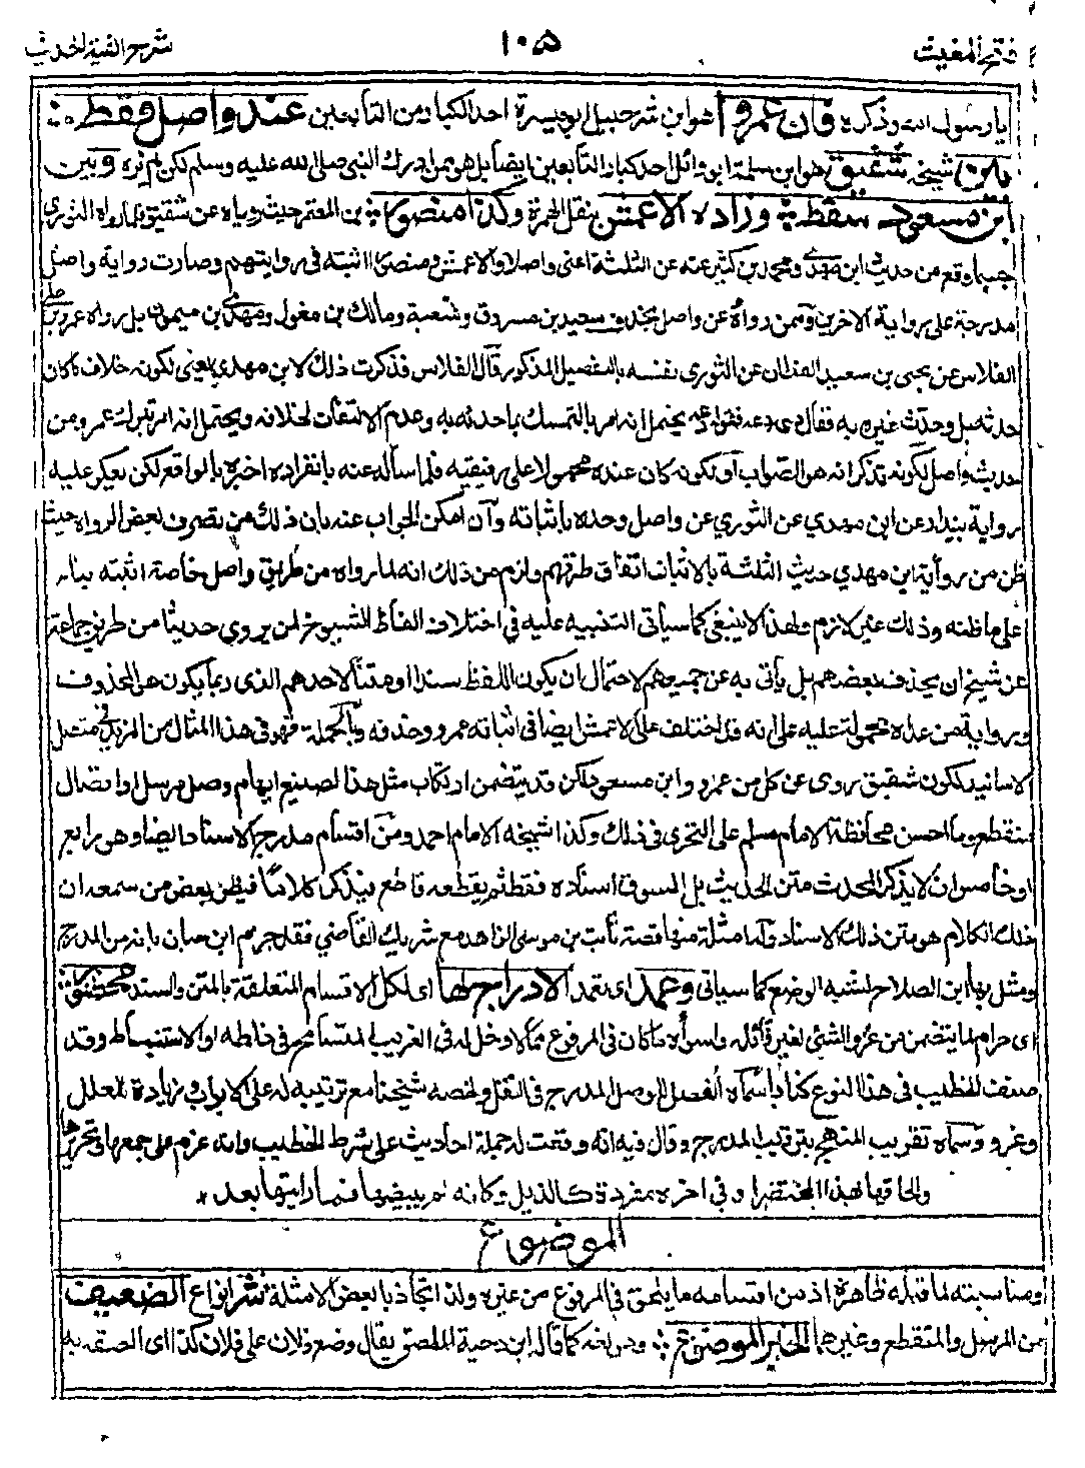 فتح المغيث
١٠٥
شرح الفية الحديث
يارسول الله وذكره فان عمروا هو ابن شرحبيل ابوميسرة احد الكبار من التابعين عند واصل فقط
بين شيخه شقيق هو ابن سلمة ابو وائل احد كبار التابعين ايضا بل هو ممن ادرك النبي صلى الله عليه وسلم لكن لم يره وبين
ابن مسعود سقط وزاده الاعمش بنقل الهمزة وكذا منصور بن المعتمر حيث روياه عن شقيق فيما رواه الثوري
حسبما وقع من حديث ابن مهدي ومحمد بن كثير عنه عن الثلثة اعنى واصلا والاعمش ومنصورا اثبته في روايتهم وصارت رواية واصل
مدرجة على رواية الاخرين وممن رواه عن واصل بحذفه سعيد بن مسروق وشعبة ومالك بن مغول ومهدي بن ميمون بل رواه عمرو بن علي
الفلاس عن يحيى بن سعيد القطان عن الثوري نفسه بالتفصيل المذكور قال الفلاس فذكرت ذلك لابن مهدي يعني لكونه خلاف ما كان
حدثه بل وحدث غيره به فقال دعه دعه فقوله دعه يحتمل انه امر بالتمسك بما حدثه به وعدم الالتفات لخلافه ويحتمل انه امر بترك عمرو من
حديث واصل لكونه تذكر انه هو الصواب او لكونه كان عنده محمولا على رفيقيه فلما سأله عنه بانفراده اخبره بالواقع لكن يعكر عليه
رواية بندار عن ابن مهدي عن الثوري عن واصل وحده باثباته وان امكن الجواب عنه بان ذلك من تصرف بعض الرواة حيث
ظن من رواية ابن مهدي حديث الثلثة بالاثبات اتفاق طرقهم ولزم من ذلك انه لما رواه من طريق واصل خاصة اثبته بناء
على ما ظنه وذلك غير لازم ولهذا لا ينبغي كما سياتي التنبيه عليه في اختلاف الفاظ الشيوخ لمن يروي حديثا من طريق جماعة
عن شيخ ان يحذف بعضهم بل يأتي به عن جميعهم لاحتمال ان يكون اللفظ سندا او متنا لاحدهم الذى ربما يكون هو المحذوف
ورواية من عداه محمولة عليه على انه قد اختلف على الاعمش ايضا في اثباته عمرو وحذفه وبالجملة فهو في هذا المثال من المزيد في متصل
الاسانيد لكون شقيق روى عن كل من عمرو وابن مسعود لكن قد يتضمن ارتكاب مثل هذا الصنيع ايهام وصل مرسل او اتصال
منقطع وما احسن محافظة الامام مسلم على التحري في ذلك وكذا شيخه الامام احمد ومن اقسام مدرج الاسناد ايضا وهو رابع
او خامس ان لا يذكر المحدث متن الحديث بل يسوق اسناده فقط ثم يقطعه قاطع فيذكر كلاما فيظن بعض من سمعه ان
ذلك الكلام هو متن ذلك الاسناد وله امثلة منها قصة ثابت بن موسى الزاهد مع شريك القاضي فقد جزم ابن حبان بانه من المدرج
ومثل بها ابن الصلاح لشبه الوضع كما سياتى وعمد اى تعمد الادراج لها اى لكل الاقسام المتعلقة بالمتن والسند محظور
اى حرام لما يتضمن من عزو الشئ لغير قائله واسوأه ما كان في المرفوع مما لا دخل له في الغريب المتسامح في خلطه او الاستنباط وقد
صنف الخطيب في هذا النوع كتابا سماه الفصل للوصل المدرج في النقل ولخصه شيخنا مع ترتيبه له على الابواب وزيادة لعلل
وعزو وسماه تقريب المنهج بترتيب المدرج وقال فيه انه وقعت له جملة احاديث على شرط الخطيب وانه عزم على جمعها وتحريرها
والحاقها بهذا المختصر او في اخره مفردة كالذيل وكانه لم يبيضها فما رايتها بعد *
الموضوع
ومناسبته لما قبله ظاهرة اذ من اقسامه ما يلحق في المرفوع من غيره ولذا تجاذبا بعض الامثلة شر انواع الضعيف
من المرسل والمنقطع وغيرهما الخبر الموضوع وهو لغة كما قاله ابن دحية الملصق يقال وضع فلان على فلان كذا اى الصقه به